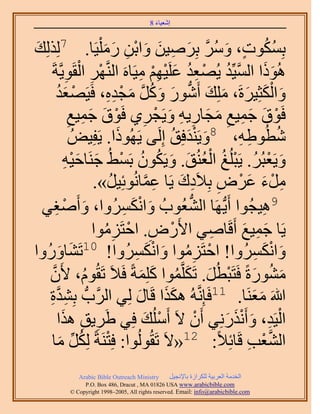 إشعياء 8
بِسُكُوتٍ، وَسُرَّ بِرَصِينَ وَابْنِ رَمَلْيَا. 7لِذلِكَ
هُوَذَا السَّيِّدُ يُصْعِدُ عَلَيْهِمْ مِيَاهَ النَّهْرِ الْقَوِيَّةَ
وَالْكَثِيرَةَ، مَلِكَ أَشُّورَ وَكُلَّ مَجْدِهِ، فَيَصْعَدُ
فَوْقَ جَمِيعِ مَجَارِيهِ وَيَجْرِي فَوْقَ جَمِيعِ
شُطُوطِهِ، 8وَيَنْدَفِقُ إِلَى يَهُوذَا. يَفِيضُ
وَيَعْبُرُ. يَبْلُغُ الْعُنُقَ. وَيَكُونُ بَسْطُ جَنَاحَيْهِ
مِلْءَ عَرْضِ بِلاَدِكَ يَا عِمَّانُوئِيلُ».
9هِيجُوا أَيُّهَا الشُّعُوبُ وَانْكَسِرُوا، وَأَصْغِي
يَا جَمِيعَ أَقَاصِي الأَرْضِ. احْتَزِمُوا
وَانْكَسِرُوا! احْتَزِمُوا وَانْكَسِرُوا! 10تَشَاوَرُوا
مَشُورَةً فَتَبْطُلَ. تَكَلَّمُوا كَلِمَةً فَلاَ تَقُومُ، لأَنَّ
اللهَ مَعَنَا. 11فَإِنَّهُ هكَذَا قَالَ لِي الرَّبُّ بِشِدَّةِ
الْيَدِ، وَأَنْذَرَنِي أَنْ لاَ أَسْلُكَ فِي طَرِيقِ هذَا
الشَّعْبِ قَائِلاً: 12«لاَ تَقُولُوا: فِتْنَةً لِكُلِّ مَا
Arabic Bible Outreach Ministry الخدمة العربية للكرازة بالإنجيل
P.O. Box 486, Dracut , MA 01826 USA www.arabicbible.com
© Copyright 1998–2005, All rights reserved. Email: info@arabicbible.com